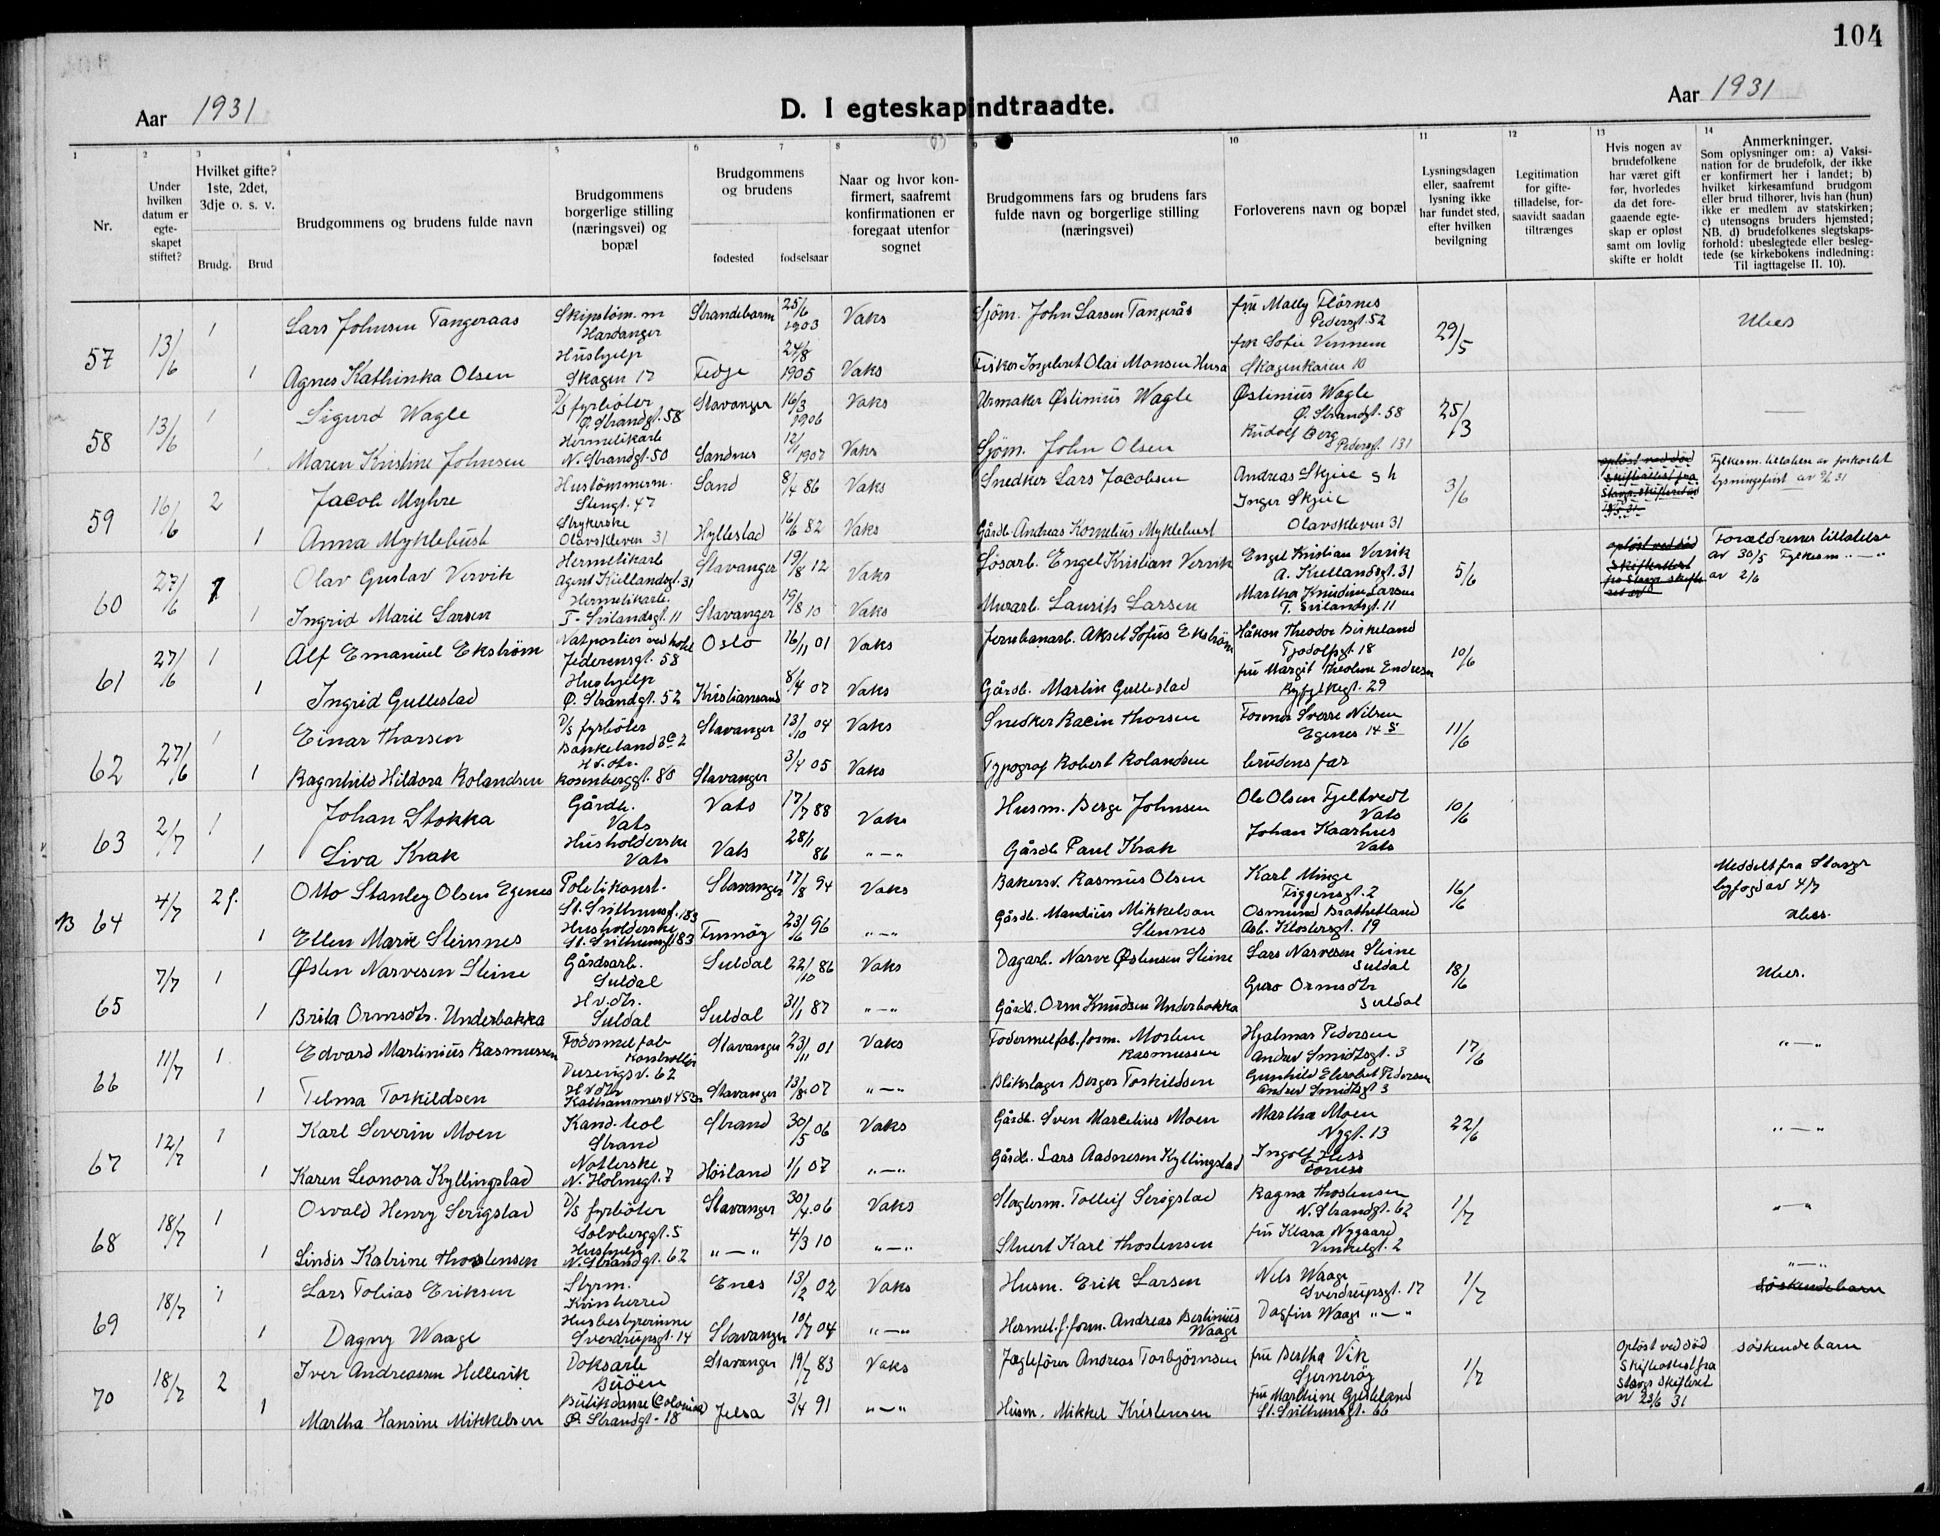 104
Aar 1931
D. I egteskap indtraadte.
Aar 1931
1 2 3 4 5 6 7 8 9 10 11 12 13 14
Nr.
Under hvilken datum er egte-skapet stiftet?
Hvilket gifte? 1ste, 2det, 3dje o. s. v.
Brudg. Brud
Brudgommens og brudens fulde navn
Brudgommens borgerlige stilling (næringsvei) og bopæl
Brudgommens og brudens
fødested fødselsaar
Naar og hvor kon-firmert, saafremt konfirmationen er foregaat utenfor sognet
Brudgommens fars og brudens fars fulde navn og borgerlige stilling (næringsvei)
Forloverens navn og bopæl
Lysningsdagen eller, saafremt lysning ikke har fundet sted, efter hvilken bevilgning
Legitimation for gifte-tilladelse, for-saavidt saadan tiltrænges
Hvis nogen av brudefolkene har været gift før, hvorledes da det fore-gaaende egte-skap er opløst samt om lovlig skifte er holdt
Anmerkninger.
Som oplysninger om: a) Vaksi-nation for de brudefolk, der ikke er konfirmert her i landet; b) hvilket kirkesamfund brudgom eller brud tilhører, hvis han (hun) ikke er medlem av statskirken; c) utensogns bruders hjemsted; NB. d) brudefolkenes slegtskaps-forhold: ubeslegtede eller besleg-tede (se kirkebokens indledning: Til iagttagelse II. 10).
57 13/6 1 Lars Johnsen Tangeraas Skipstøm. m Hardanger Strandebarm 25/6 1903 Vaks Sjøm. John Larsen Tangerås fru Mally Flörnes Pedersgt. 52 29/5 Ubes
1 Agnes Kathinka Olsen Hushjelp Skagen 17 Fedje 24/8 1905 Vaks Fisker Ingebret Olai Monsen Husa frk Sofie Vinnem Skagenkaien 10
58 13/6 1 Sigurd Wagle D/s fyrbøter Ø. Strandgt. 58 Stavanger 16/3 1906 Vaks Urmaker Østinius Wagle Østinius Wagle Ø. Strandgt. 58 25/3
1 Maren Kristine Johnsen Hermetikarb N. Strandgt. 50 Sandnes 12/1 1907 Vaks Sjøm. John Olsen Rudolf Berg Pedersgt. 131
59 16/6 2 Jacob Myhre Hustømmerm. Stengt. 47 Sand 8/4 86 Vaks Snedker Lars Jacobsen Andreas Skjeie s h 3/6 opløst ved død Skifteattest fra Stavgr. skifteret av Fylkesm. tillatelse av forkortet lysningsfrist av 31
1 Anna Myklebust Strykerske Olavskleven 31 Hyllestad 16/6 82 Vaks Gårdb. Andreas Kornelius Myklebust Inger Skjeie Olavskleven 31
60 27/6 1 Olav Gustav Vervik Hermetikarb Agent Kiellandsgt. 31 Stavanger 19/8 12 Vaks Løsarb. Engel Kristian Vervik Engel Kristian Vervik A. Kiellandsgt. 31 5/6 opløst ved død Skifteattest fra Stavgr skifteret Forældrenes tillatelse av 30/5 Fylkesm. „—„ av 2/6
1 Ingrid Marie Larsen Hermetikarb. T. Svilandsgt. 11 Stavanger 19/8 10 Vaks Murarb. Laurits Larsen Martha Knudine Larsen T. Svilandsgt. 11
61 27/6 1 Alf Emanuel Ekstrøm Natportier ved hotel Jederensgt. 58 Oslo 16/11 01 Vaks Jernbanarb. Aksel Sofus Ekstrøm Håkon Theodor Birkeland Tjodolfsgt. 18 10/6
1 Ingrid Gullestad Hushjelp Ø. Strandgt. 52 Kristiansand 8/4 07 Vaks Gårdb. Martin Gullestad fru Margit Theoline Endresen Ryfylkegt. 29
62 27/6 1 Einar Thorsen D/s fyrbøter Bankeland 3c 2 Stavanger 13/10 04 Vaks Snedker Racin Thorsen Former Sverre Nilsen Egenes 14 5 11/6
1 Ragnhild Hildora Rolandsen H. v. dtr. Rosenberggt. 80 Stavanger 3/4 05 Vaks Typograf Robert Rolandsen brudens far
63 2/7 1 Johan Stokka Gårdb. Vats Vats 17/7 88 Vaks Husm. Berge Johnsen Ole Olsen Fjeltvedt Vats 10/6
1 Siva Krak Husholderske Vats Vats 28/1 86 „—„ Gårdb Paul Krak Johan Kaarhus Vats
B 64 4/7 2 f. Otto Stanley Olsen Egenes Politikonst. St. Svithunsgt. 183 Stavanger 17/8 94 Vaks Bakersv. Rasmus Olsen Karl Minge Figgensgt. 2 16/6 Meddelt fra Stavgr byfogd av 4/7 Ubes.
1 Ellen Marie Steinnes Husholderske St. Svithunsgt 183 Finnøy 23/6 96 „—„ Gårdb. Mandius Mikkelson Stennes Osmund Brathetland Asb. Klostersgt. 19
65 7/7 1 Østen Narvesen Steine Gårdsarb. Suldal Suldal 22/10 86 Vaks Dagarb. Narve Østensen Steine Lars Narvesen Steine Suldal 18/6 Ubes.
1 Brita Ormsdtr. Underbakka H v. dtr. Suldal Suldal 31/1 87 „—„ Gårdb. Orm Knudsen Underbakka Guro Ormsdtr Suldal
66 11/7 1 Edvard Martinius Rasmussen Fodermelfab Kontrollør Dusevigsv. 62 Stavanger 23/11 01 Vaks Fodermelfab. form. Morten Rasmussen Hjalmar Pedersen Andrew Smidtsgt. 3 17/6 „—„
1 Telma Torkildsen H v dtr Kalhammerv 45 Stavanger 13/8 07 „—„ Blikslager Berger Torkildsen Gunhild Elisabet Pedersen Andrew Smidtsgt 3
67 12/7 1 Karl Severin Moen Kand. teol Strand Strand 30/5 06 Vaks Gårdb. Sven Marcelius Moen Martha Moen Nygt. 13 22/6 „—„
1 Karen Leonora Kyllingstad N. Holmegt. 7 Höiland 1/1 07 „—„ Gårdb. Lars Aadnesen Kyllingstad Ingolf
68 18/7 1 Osvald Henry Serigstad D/s fyrbøter Solvberggt. 5 Stavanger 30/4 06 Vaks Slagterm. Tolleif Serigstad Ragna Thostensen N. Strandgt. 62 1/7 „—„
1 Lindis Katrine Thostensen Hushjelp N. Strandgt. 62 „—„ 4/3 10 „—„ Stuert Karl Thostensen fru Klara Nygaard Vinkelgt. 2
69 18/7 1 Lars Tobias Eriksen Styrm. Kvinherred Enes 13/2 02 Vaks Husm. Erik Larsen Nels Waage Sverdrupsgt. 17 1/7 „—„ søskendebarn
1 Dagny Waage Husbestyrerinne Sverdrupsgt. 14 Stavanger 10/7 04 „—„ Hermet. f. form. Andreas Bertinius Waage Dagfin Waage „—„
70 18/7 2 Iver Andreassen Hellevik Doksarb Buöen Stavanger 19/7 83 Vaks Jagtefører Andreas Torbjørnsen fru Bertha Vik Sjernerøy 1/7 Opløst ved død Skifteattest fra Stavgr Skifteret av 23/6 31 søskendebarn
1 Martha Hansine Mikkelsen Butikdame (Colonial) Ø. Strandgt. 18 Jelsa 3/4 91 „—„ Husm. Mikkel Kristensen fru Marthine Gjesteland St. Svithunsgt. 66